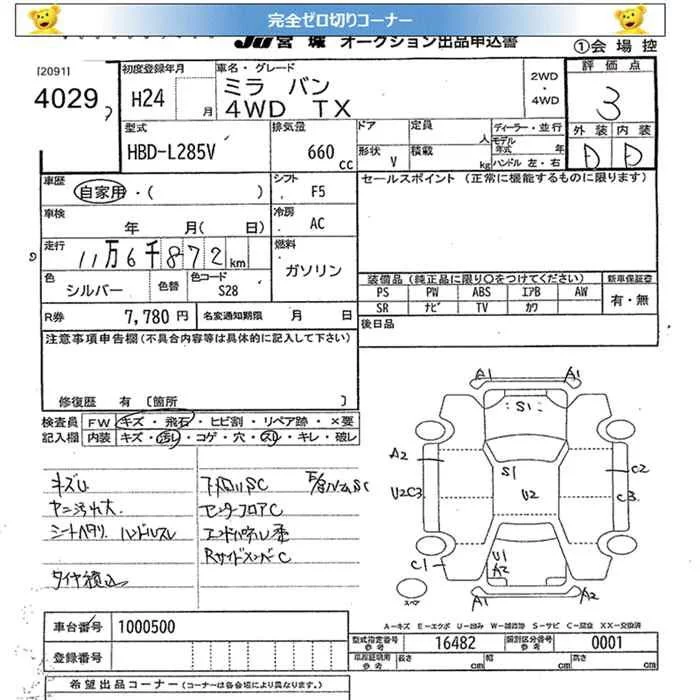 完全ゼロ切りコーナー
JU 宮城 オークション出品申込書
①会場控
[2091]
4029
初度登録年月
H24 月
車名・グレード
ミラ バン
4WD TX
2WD
・
4WD
評価点
3
外装 内装
D D
型式
HBD-L285V
排気量
660 cc
ドア
形状 V
定員 人
積載 kg
ディーラー・並行
モデル年式 年
ハンドル 左・右
車歴
自家用・( )
シフト F5
セールスポイント (正常に機能するものに限ります)
車検
年 月( 日)
冷房 AC
走行
11万6千872km
燃料
ガソリン
色
シルバー
色替
色コード
S28
装備品(純正品に限り○をつけてください)
新車保証書
PS PW ABS エアB AW
SR ナビ TV カワ
有・無
R券 7,780 円
名変通知期限 月 日
後日品
注意事項申告欄(不具合内容等は具体的に記入して下さい)
修復歴 有 〔箇所 〕
検査員
記入欄
FW キズ・飛石・ヒビ割・リペア跡・×要
内装 キズ・汚レ・コゲ・穴・スレ・キレ・破レ
キズU
ヤニ汚れ大
シートヘタリ ハンドルスレ
タイヤ積込
下廻りSC
センターフロアC
エンドパネル歪
RサイドメンバーC
A1 A1
S1
A2
S1
C2
U2C3
U2
C3
U1
A2
C1
スペア
A1 A2
A-キズ E-エクボ U-凹み W-補修跡 S-サビ C-腐食 XX-交換済
車台番号 1000500
登録番号
型式指定番号
参考
16482
類別区分番号
参考
0001
車庫証明用
参考
長さ cm
幅 cm
高さ cm
希望出品コーナー (コーナーは各会場により異なります。)